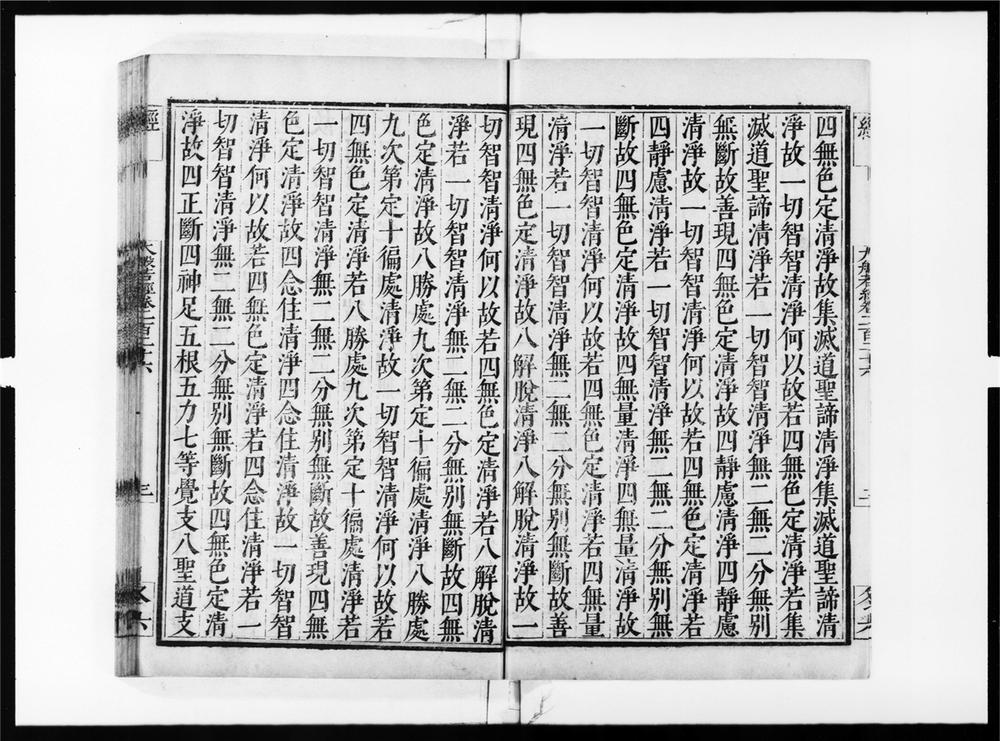 四無色定清淨故集滅道聖諦清淨集滅道聖諦清
淨故一切智智清淨何以故若四無色定清淨若集
滅道聖諦清淨若一切智智清淨無二無二分無別
無斷故善現四無色定清淨故四靜慮清淨四靜慮
清淨故一切智智清淨何以故若四無色定清淨若
四靜慮清淨若一切智智清淨無二無二分無別無
斷故四無色定清淨故四無量清淨四無量清淨故
一切智智清淨何以故若四無色定清淨若四無量
清淨若一切智智清淨無二無二分無別無斷故善
現四無色定清淨故八解脫清淨八解脫清淨故一
切智智清淨何以故若四無色定清淨若八解脫清
淨若一切智智清淨無二無二分無別無斷故四無
色定清淨故八勝處九次第定十徧處清淨八勝處
九次第定十徧處清淨故一切智智清淨何以故若
四無色定清淨若八勝處九次第定十徧處清淨若
一切智智清淨無二無二分無別無斷故善現四無
色定清淨故四念住清淨四念住清淨故一切智智
清淨何以故若四無色定清淨若四念住清淨若一
切智智清淨無二無二分無別無斷故四無色定清
淨故四正斷四神足五根五力七等覺支八聖道支
經
大般若經卷二百二十六
三